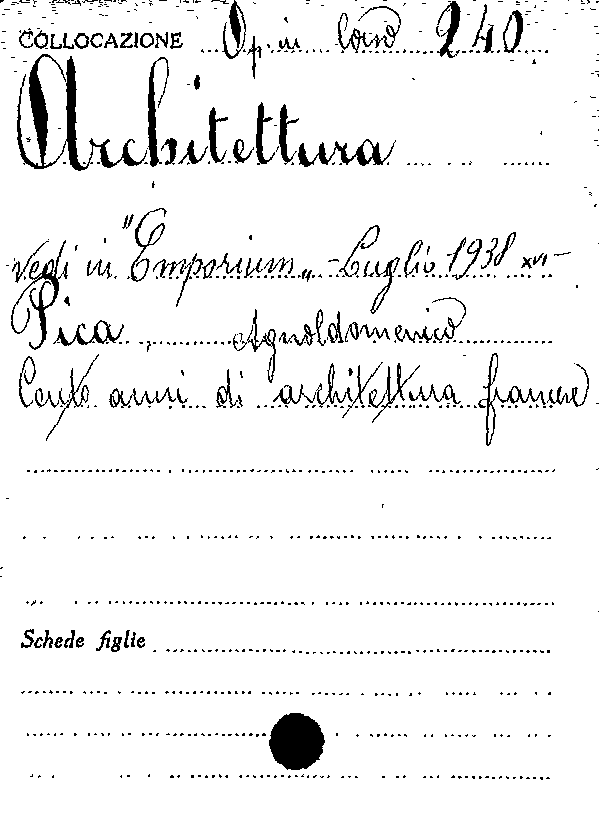 COLLOCAZIONE Op. in corso 240
Architettura
vedi in "Emporium„ - Luglio 1938 XVI -
Pica, Agnoldomenico
Cento anni di architettura francese
Schede figlie